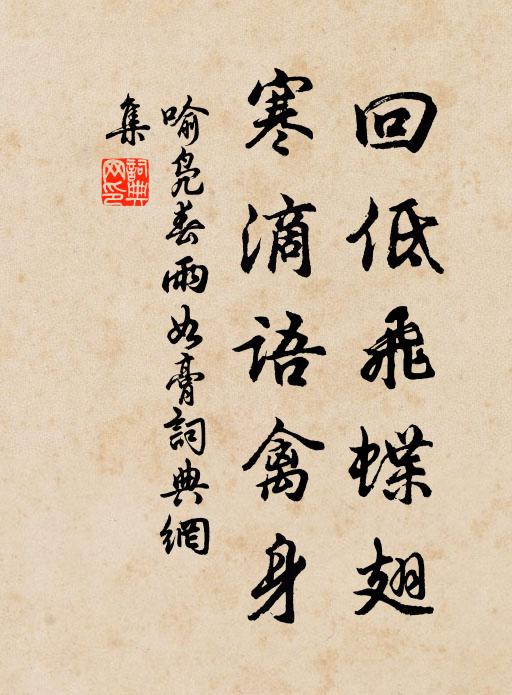 回低飛蝶翅
寒滴語禽身
喻凫春雨如膏詞典網
集
詞典
网印